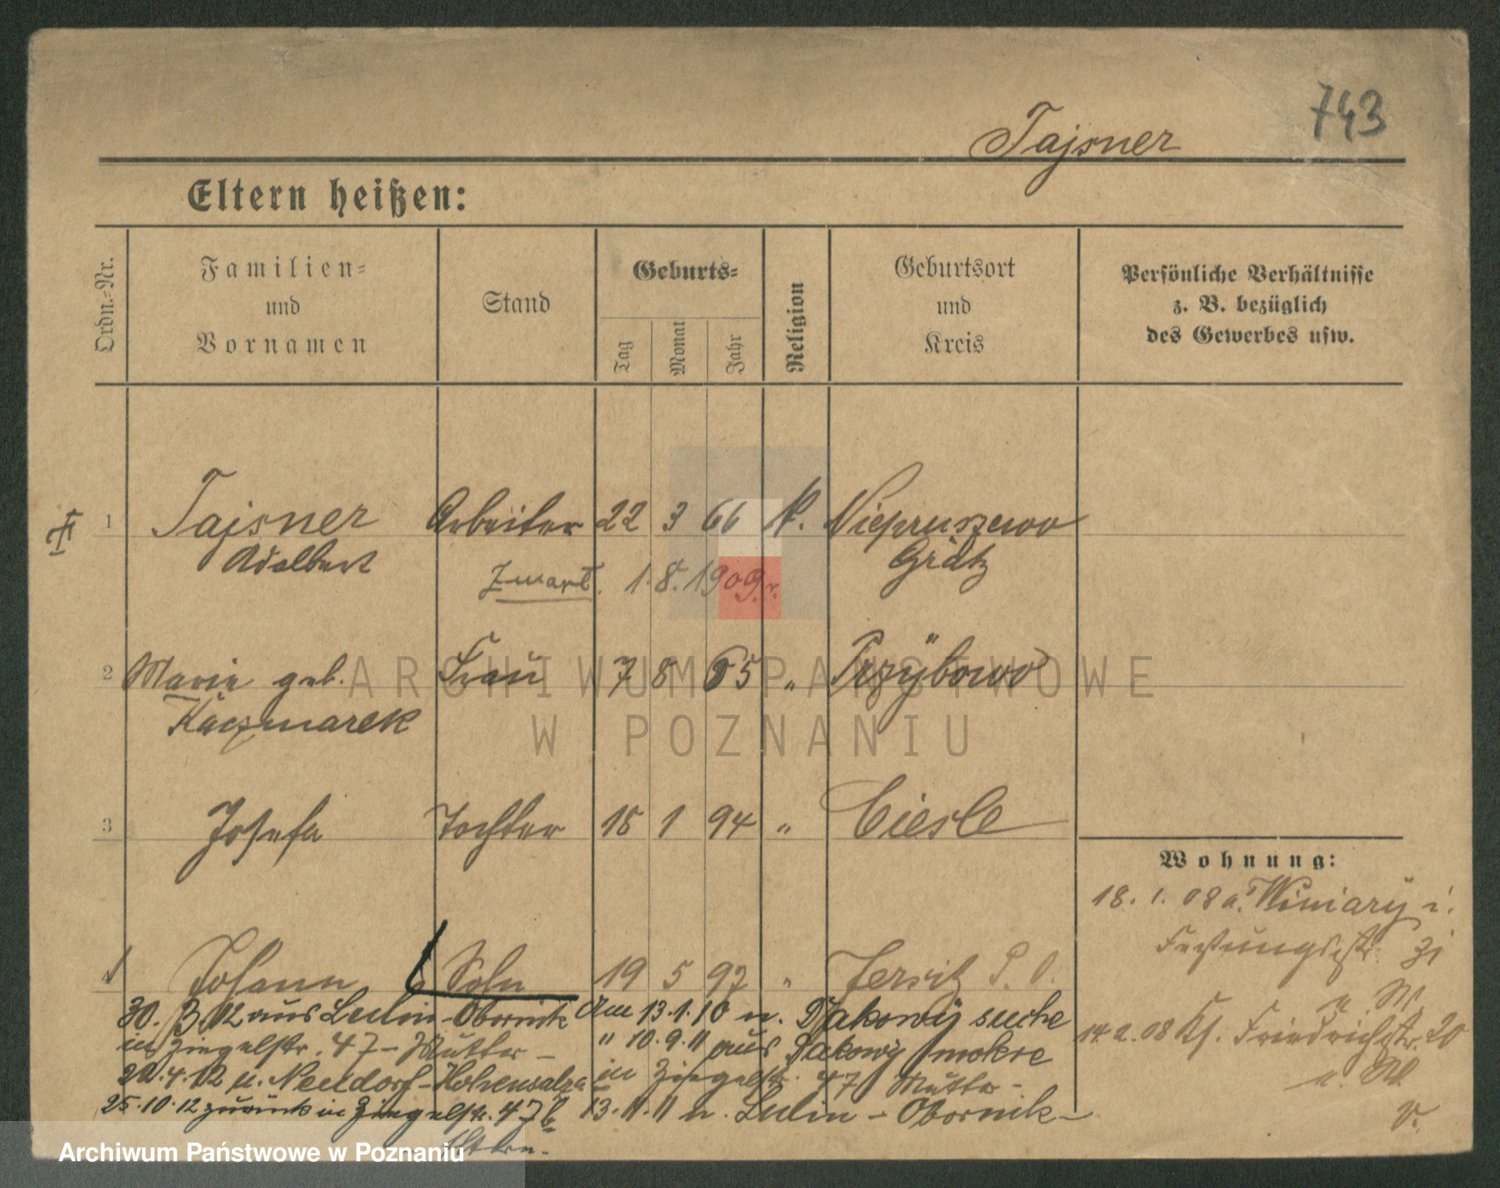 743
Tajsner
Eltern heißen:
Ordn.-Nr.
Familien-
und
Vornamen
Stand
Geburts-
Tag
Monat
Jahr
Religion
Geburtsort
und
Kreis
Persönliche Verhältnisse
z. B. bezüglich
des Gewerbes usw.
1 Tajsner Arbeiter 22 3 66 k. Niepruszewo
Adalbert Grätz
Zmarł. 1.8.1909 r.
2 Marie geb. Frau 7 8 65 " Przybowo
Kaczmarek
3 Josefa Tochter 15 1 94 " Ciesle
Wohnung:
18. 1. 08 a. Winiary i.
Festungsstr.
4 Johann Sohn 19 5 97 " Jersitz P. O.
30. 3 12 aus Lulin - Obornik Am 13.1.10 n. Żakowy suche
in Ziegelstr. 47 - Mutter - " 10.9.11 aus Żakowy mokre
22.4.12 n. Neudorf - Hohensalza in Ziegelstr. 47 Mutter -
25.10.12 zurück in Ziegelstr. 47 b 13.11.11 n. Lulin - Obornik -
Eltern.
08 Kl. Friedrichstr. 20
ARCHIWUM PAŃSTWOWE
W POZNANIU
Archiwum Państwowe w Poznaniu